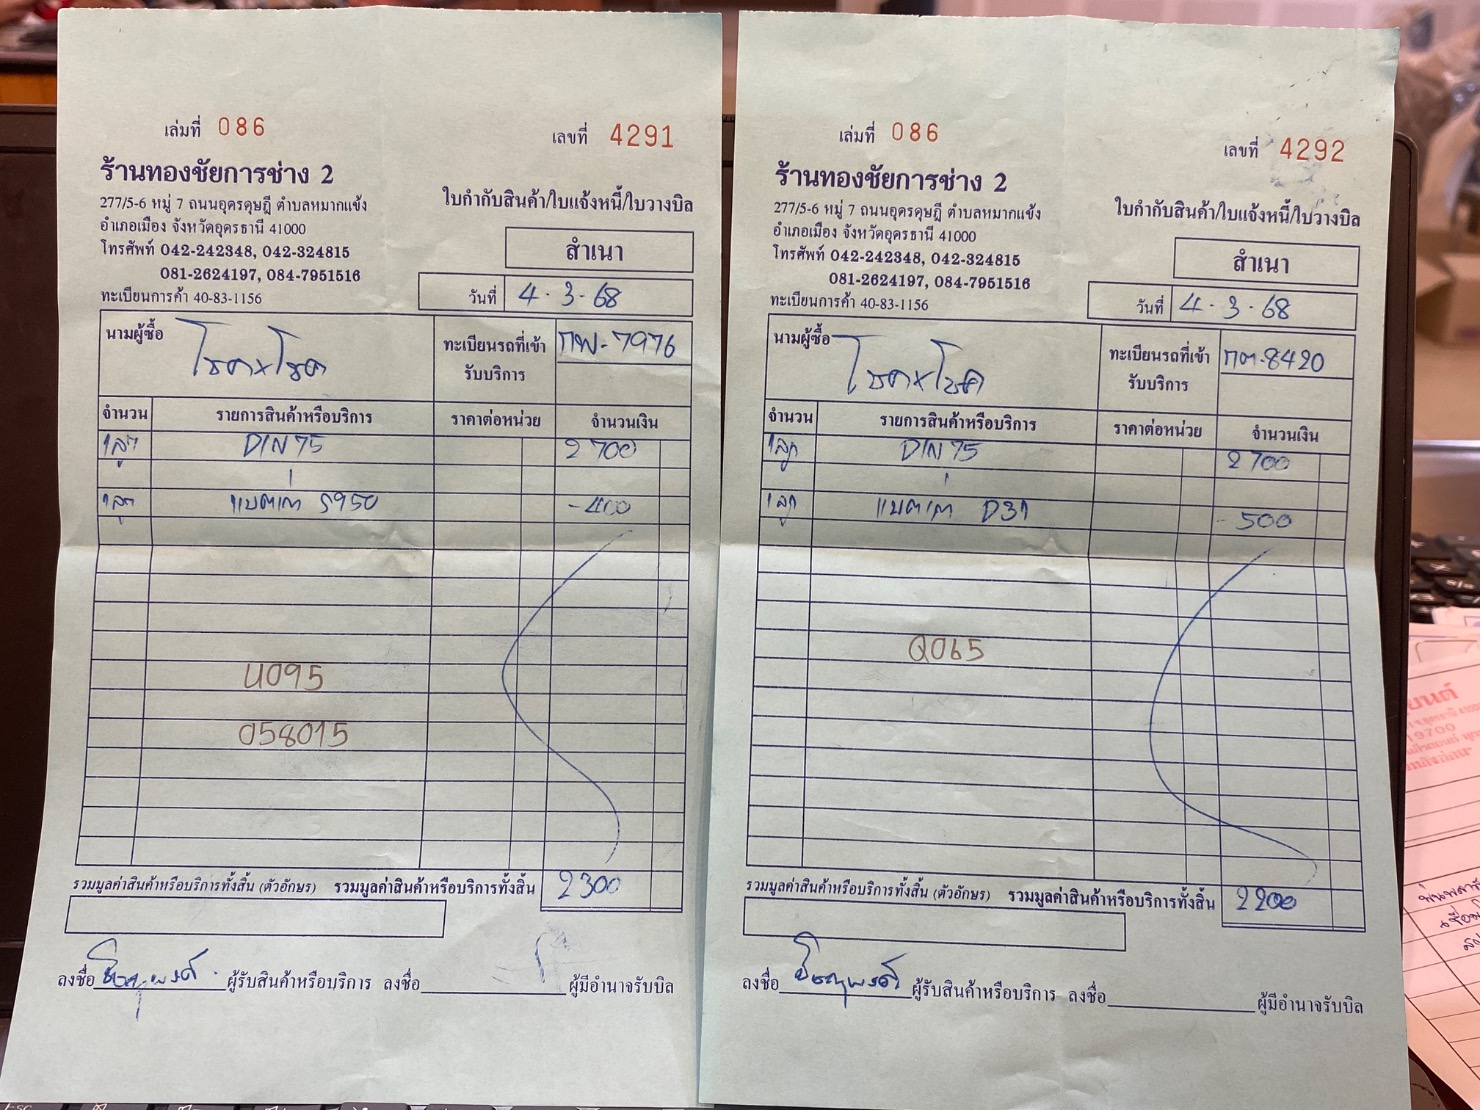 เล่มที่ 086
เลขที่ 4291
ร้านทองชัยการช่าง 2
277/5-6 หมู่ 7 ถนนอุดรดุษฎี ตำบลหมากแข้ง
อำเภอเมือง จังหวัดอุดรธานี 41000
โทรศัพท์ 042-242348, 042-324815
081-2624197, 084-7951516
ทะเบียนการค้า 40-83-1156
ใบกำกับสินค้า/ใบแจ้งหนี้/ใบวางบิล
สำเนา
วันที่ 4-3-68
นามผู้ซื้อ โชคxโชค
ทะเบียนรถที่เข้า กพ-7976
รับบริการ
จำนวน รายการสินค้าหรือบริการ ราคาต่อหน่วย จำนวนเงิน
1ลูก DIN 75 2700
1ลูก แบตเก่า -400
U095
058015
รวมมูลค่าสินค้าหรือบริการทั้งสิ้น (ตัวอักษร) รวมมูลค่าสินค้าหรือบริการทั้งสิ้น 2300
ลงชื่อ ผู้รับสินค้าหรือบริการ ลงชื่อ ผู้มีอำนาจรับบิล
เล่มที่ 086
เลขที่ 4292
ร้านทองชัยการช่าง 2
277/5-6 หมู่ 7 ถนนอุดรดุษฎี ตำบลหมากแข้ง
อำเภอเมือง จังหวัดอุดรธานี 41000
โทรศัพท์ 042-242348, 042-324815
081-2624197, 084-7951516
ทะเบียนการค้า 40-83-1156
ใบกำกับสินค้า/ใบแจ้งหนี้/ใบวางบิล
สำเนา
วันที่ 4-3-68
นามผู้ซื้อ โชคxโชค
ทะเบียนรถที่เข้า กต-8420
รับบริการ
จำนวน รายการสินค้าหรือบริการ ราคาต่อหน่วย จำนวนเงิน
1ลูก DIN 75 2700
1ลูก แบตเก่า D31 -500
Q065
รวมมูลค่าสินค้าหรือบริการทั้งสิ้น (ตัวอักษร) รวมมูลค่าสินค้าหรือบริการทั้งสิ้น 2200
ลงชื่อ ผู้รับสินค้าหรือบริการ ลงชื่อ ผู้มีอำนาจรับบิล
ยนต์
19700